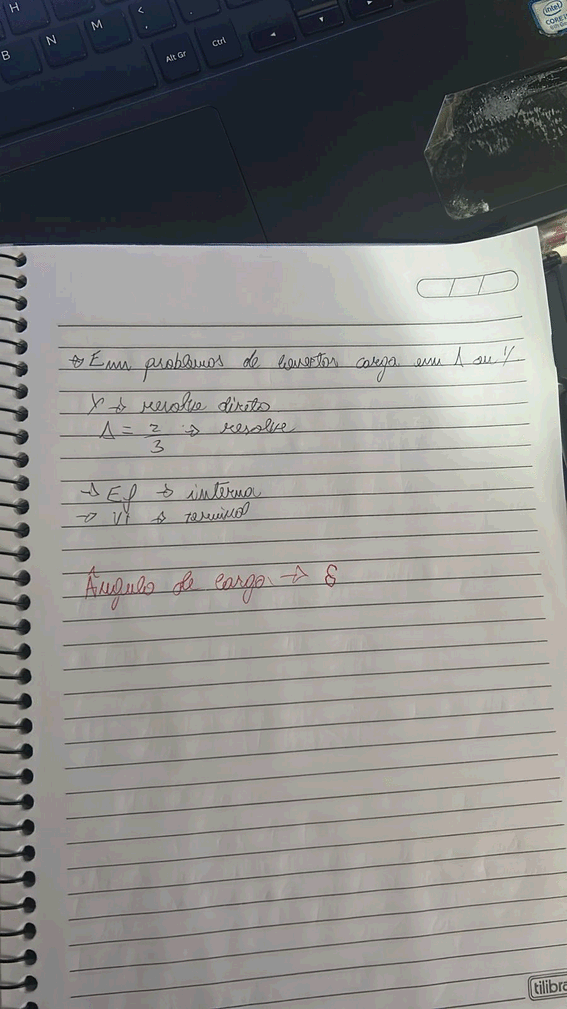 H
B
N
M
<
Alt Gr
Ctrl
intel
CORE i
* Em problemas de conectar carga em Δ ou Y
Y → resolve direto
Δ = z/3 → resolve
→ Ef → interna
→ Vt → terminal
Ângulo de carga → δ
tilibra